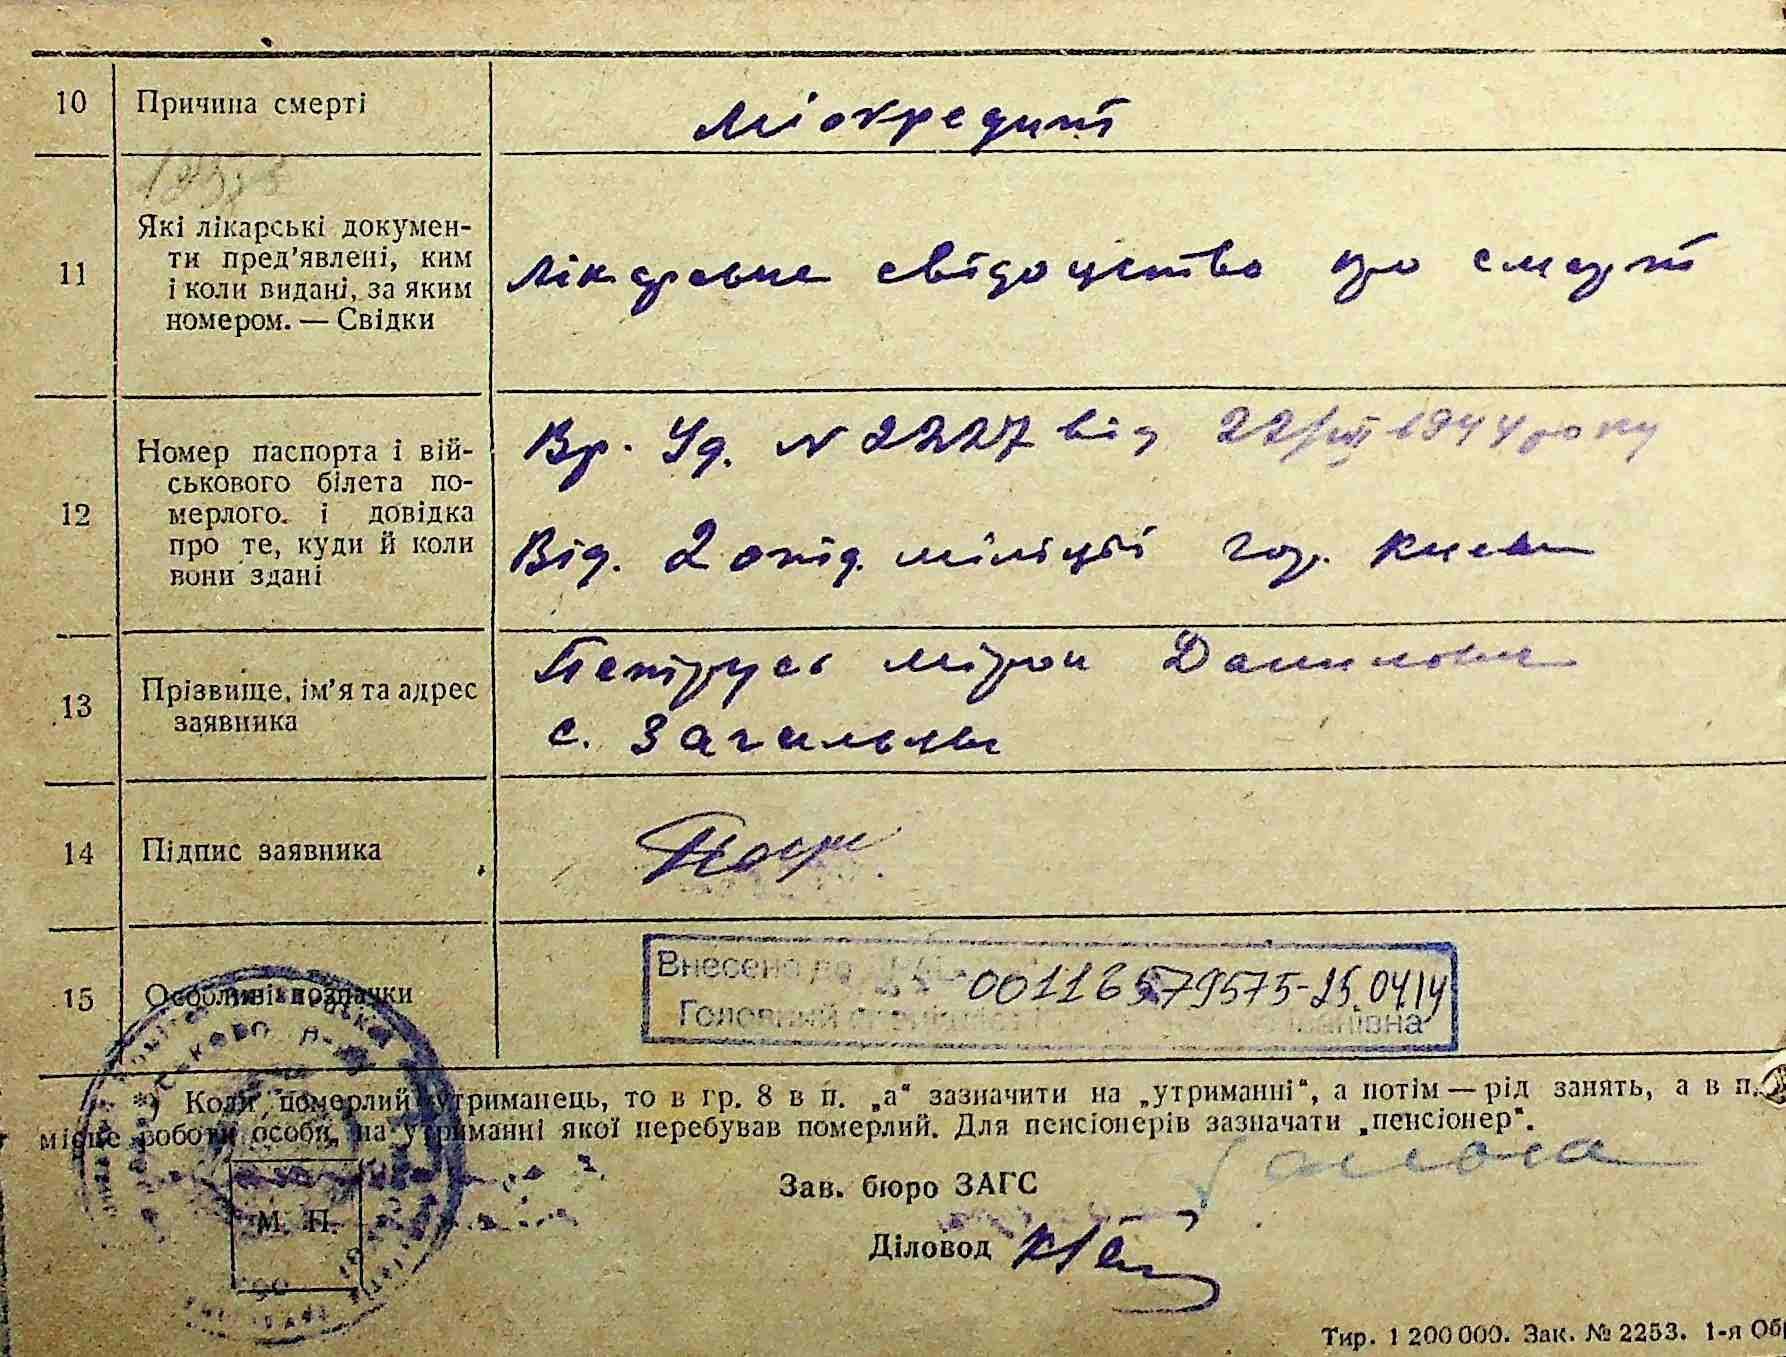 10 Причина смерті
Міокредит
11 Які лікарські докумен-
ти пред'явлені, ким
і коли видані, за яким
номером. — Свідки
Лікарське свідоцтво про смерт
12 Номер паспорта і вій-
ськового білета по-
мерлого. і довідка
про те, куди й коли
вони здані
Вр. Уд. № 2227 від 22/VII 1944 року
Від. 2 отід. міліції гор. Києва
13 Прізвище, ім'я та адрес
заявника
Петрусь Мірон Данилович
с.
14 Підпис заявника
15 Особливі позначки
Внесено до
00116579575-25.04.14
Головний
*) Коли померлий утриманець, то в гр. 8 в п. „а“ зазначити на „утриманні“, а потім — рід занять, а в п.
місце роботи особи, на утриманні якої перебував померлий. Для пенсіонерів зазначати „пенсіонер“.
Зав. бюро ЗАГС
М. П.
Діловод
Тир. 1 200 000. Зак. № 2253. 1-я Обр